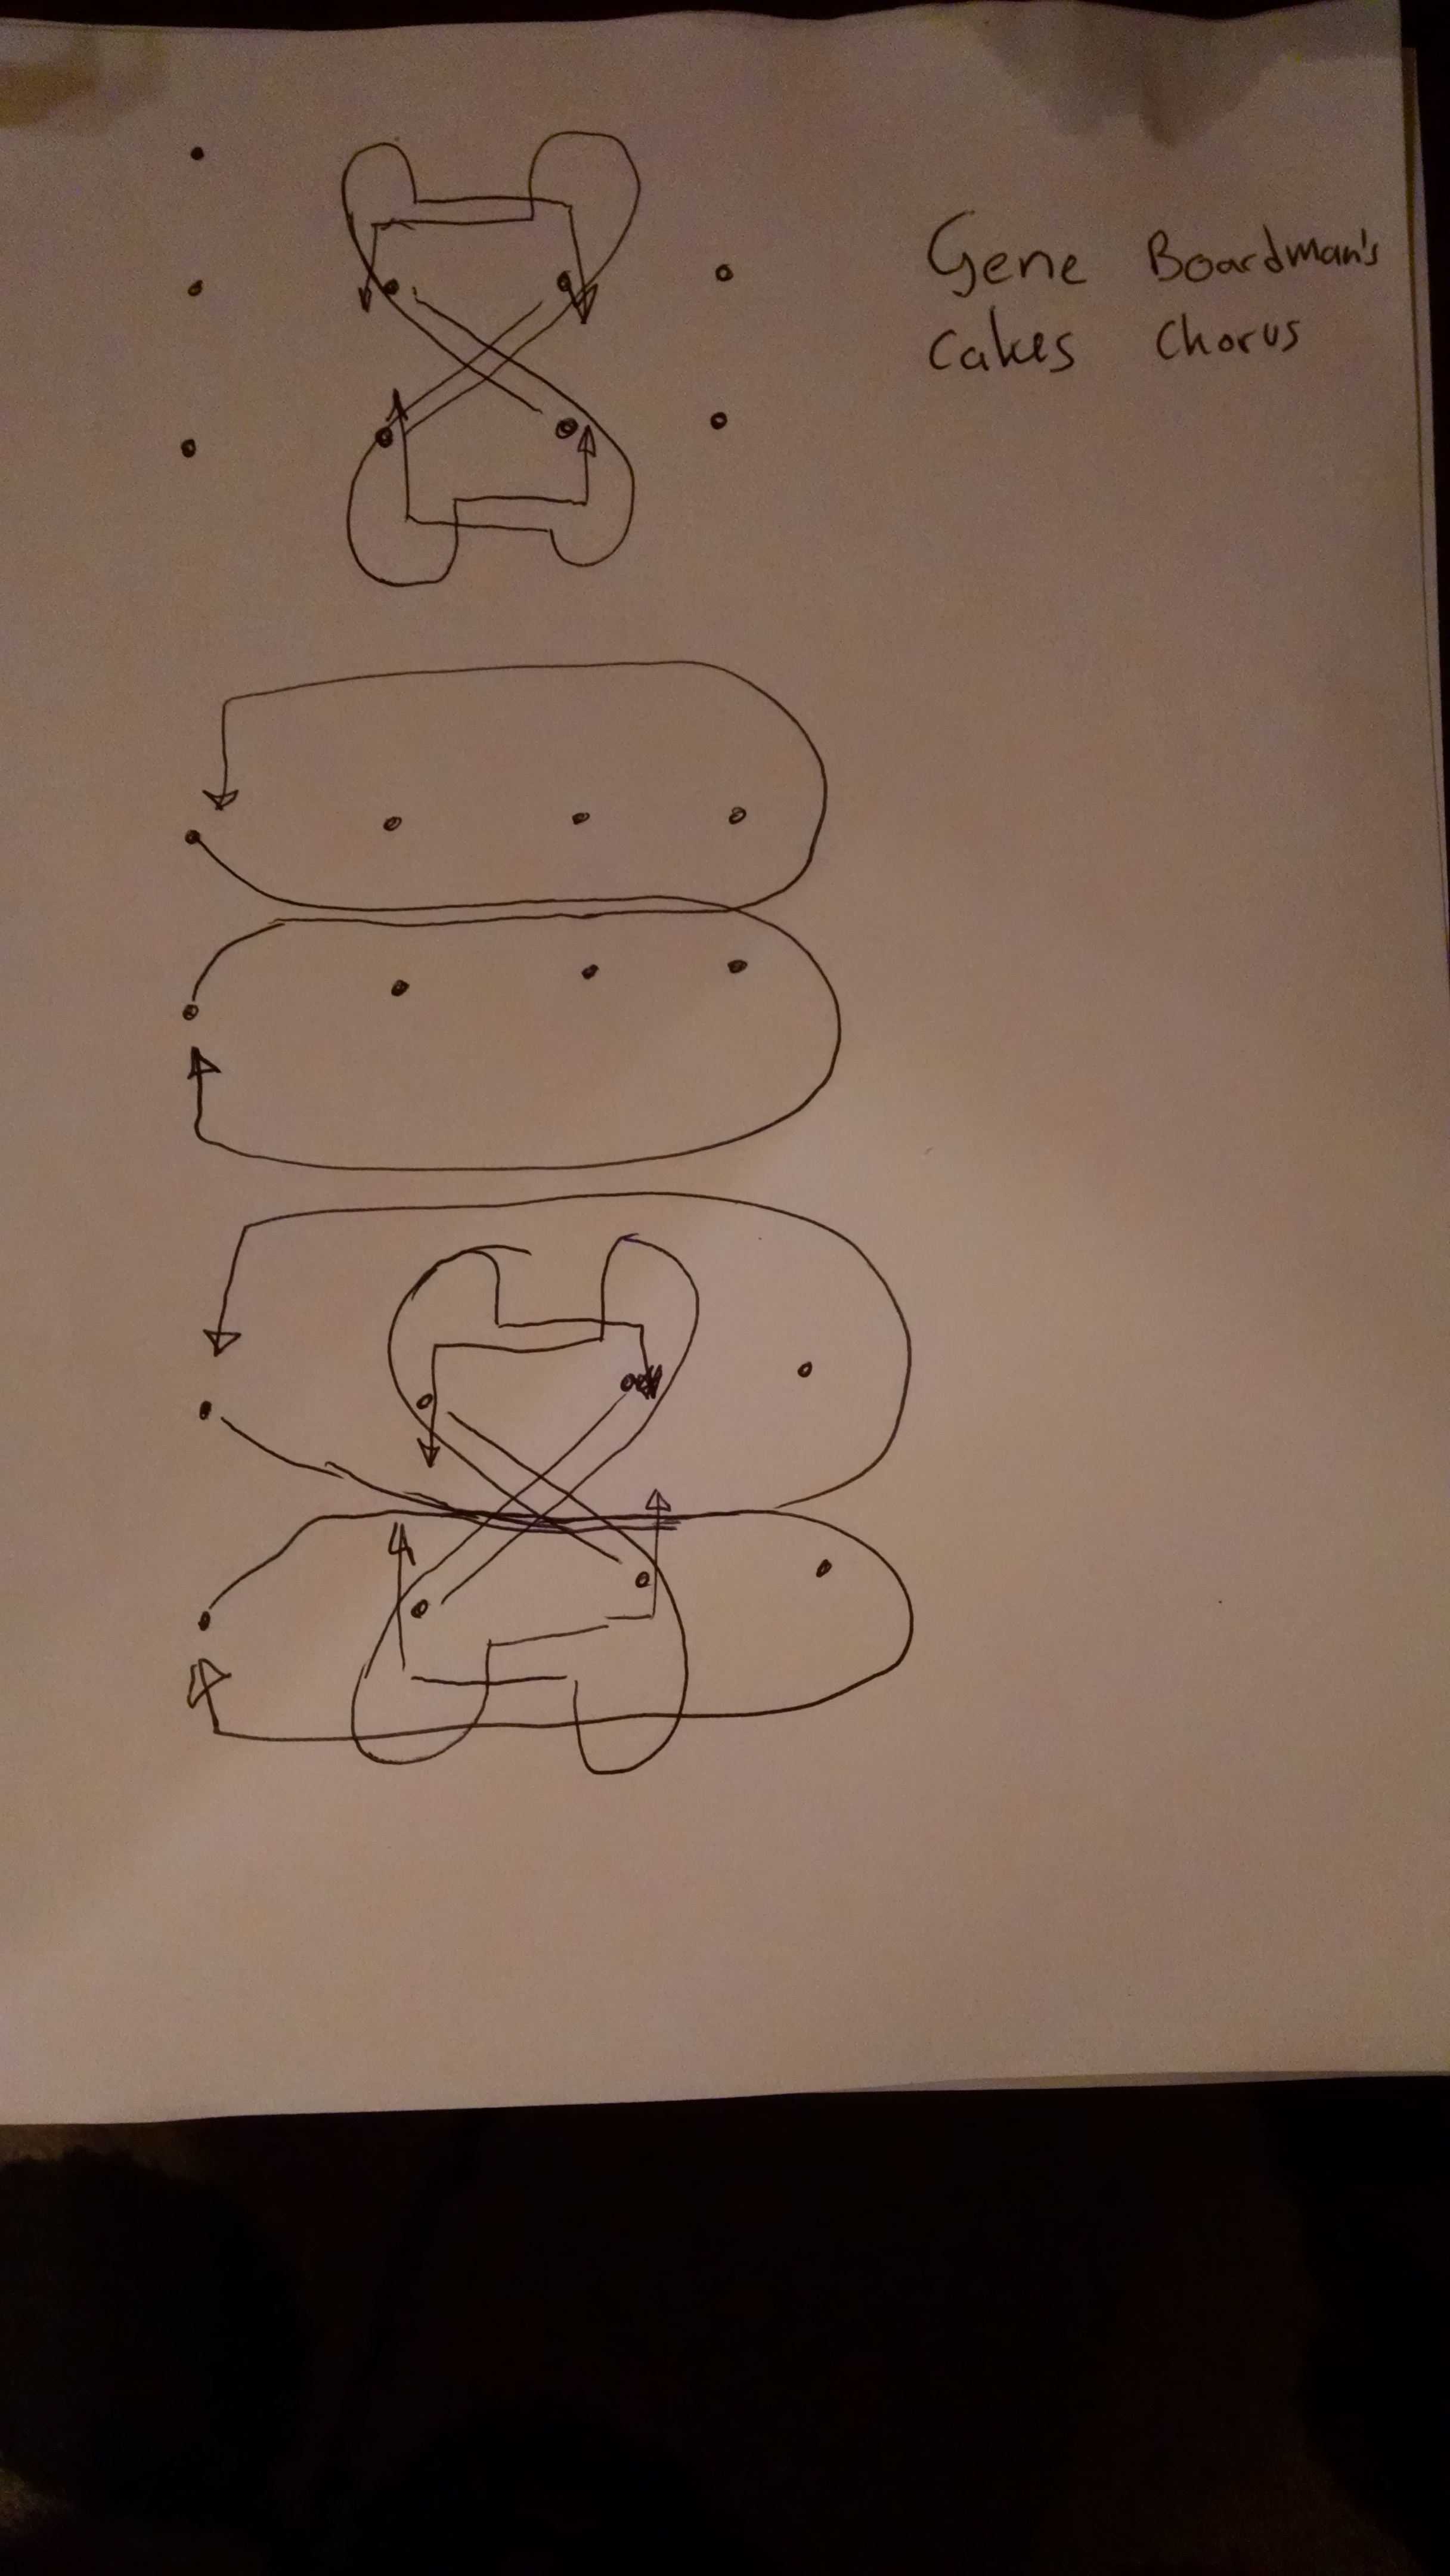 Gene Boardman's
Cakes Chorus